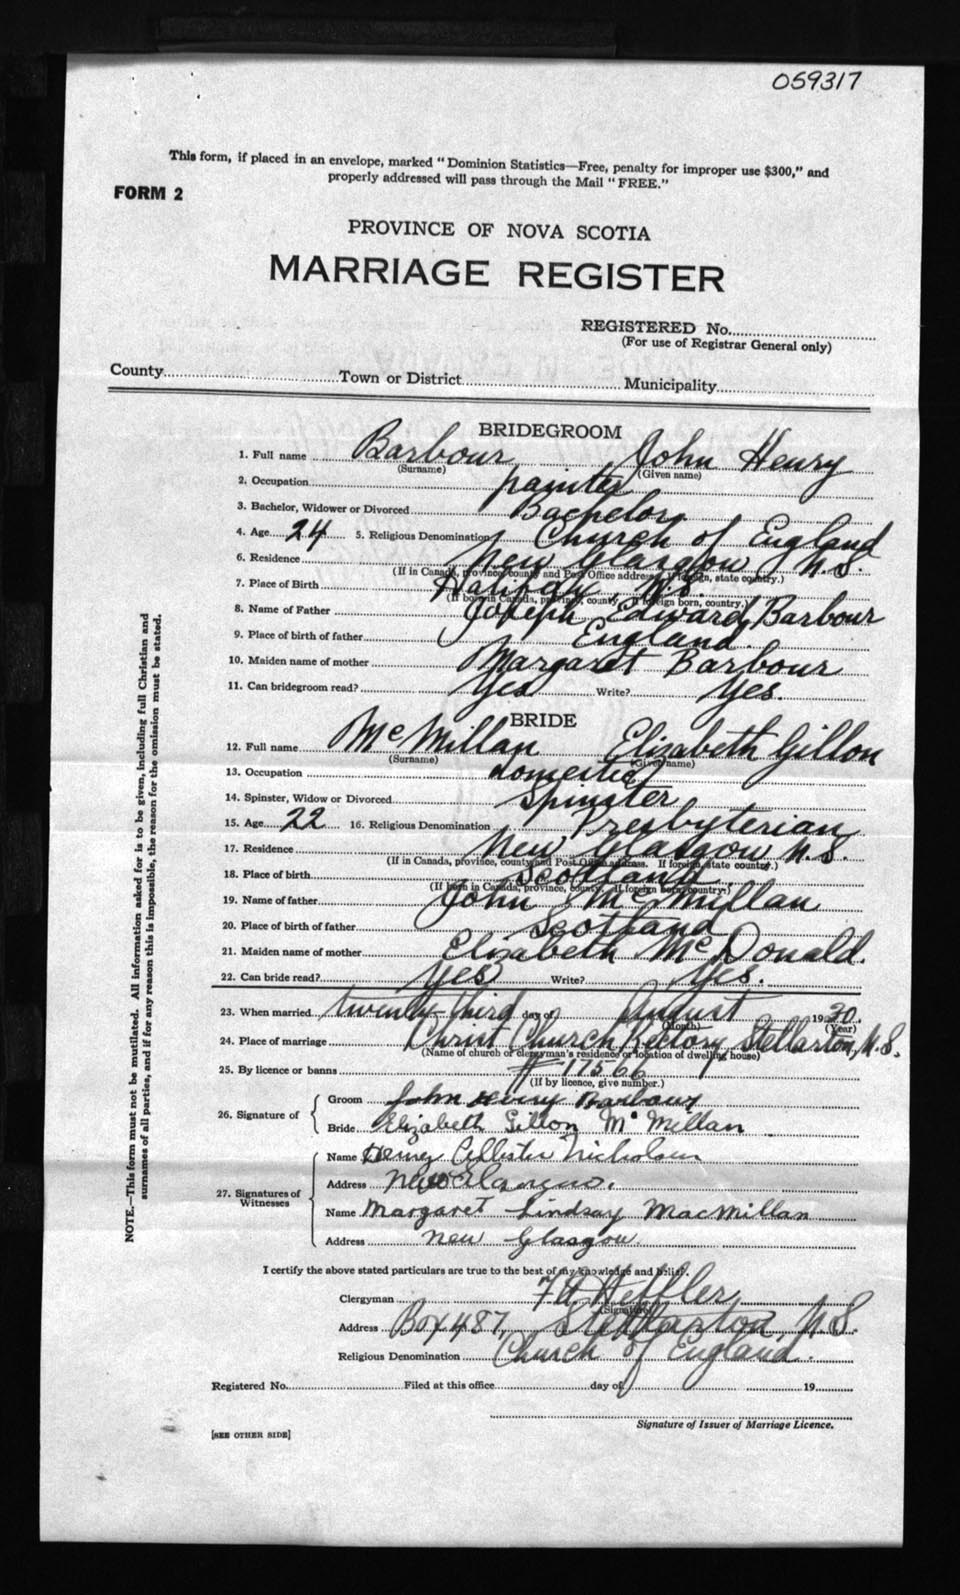 059317
This form, if placed in an envelope, marked "Dominion Statistics—Free, penalty for improper use $300," and
properly addressed will pass through the Mail "FREE."
FORM 2
PROVINCE OF NOVA SCOTIA
MARRIAGE REGISTER
REGISTERED No.
(For use of Registrar General only)
County Town or District Municipality
BRIDEGROOM
1. Full name Barbour John Henry
(Surname) (Given name)
2. Occupation painter
3. Bachelor, Widower or Divorced Bachelor
4. Age 24 5. Religious Denomination Church of England
6. Residence New Glasgow N.S.
(If in Canada, province, county and Post Office address. If foreign, state country.)
7. Place of Birth Halifax, N.S.
(If born in Canada, province, county. If foreign born, country.)
8. Name of Father Joseph Edward Barbour
9. Place of birth of father England.
10. Maiden name of mother Margaret Barbour
11. Can bridegroom read? Yes Write? Yes.
BRIDE
12. Full name McMillan Elizabeth Gillon
(Surname) (Given name)
13. Occupation domestic
14. Spinster, Widow or Divorced Spinster
15. Age 22 16. Religious Denomination Presbyterian
17. Residence New Glasgow N.S.
(If in Canada, province, county and Post Office address. If foreign, state country.)
18. Place of birth Scotland
(If born in Canada, province, county. If foreign born, country.)
19. Name of father John McMillan
20. Place of birth of father Scotland
21. Maiden name of mother Elizabeth McDonald.
22. Can bride read? Yes Write? Yes.
23. When married twenty-third day of August 1930.
(Month) (Year)
24. Place of marriage Christ Church Rectory Stellarton, N.S.
(Name of church or clergyman's residence or location of dwelling house)
25. By licence or banns # 17566
(If by licence, give number.)
26. Signature of
Groom John Henry Barbour
Bride Elizabeth Gillon McMillan
27. Signatures of
Witnesses
Name Nicholson
Address New Glasgow.
Name Margaret Lindsay MacMillan
Address New Glasgow.
I certify the above stated particulars are true to the best of my knowledge and belief.
Clergyman Heffler
(Signature)
Address Box 487, Stellarton, N.S.
Religious Denomination Church of England.
Registered No. Filed at this office day of 19
Signature of Issuer of Marriage Licence.
[SEE OTHER SIDE]
NOTE.—This form must not be mutilated. All information asked for is to be given, including full Christian and
surnames of all parties, and if for any reason this is impossible, the reason for the omission must be stated.